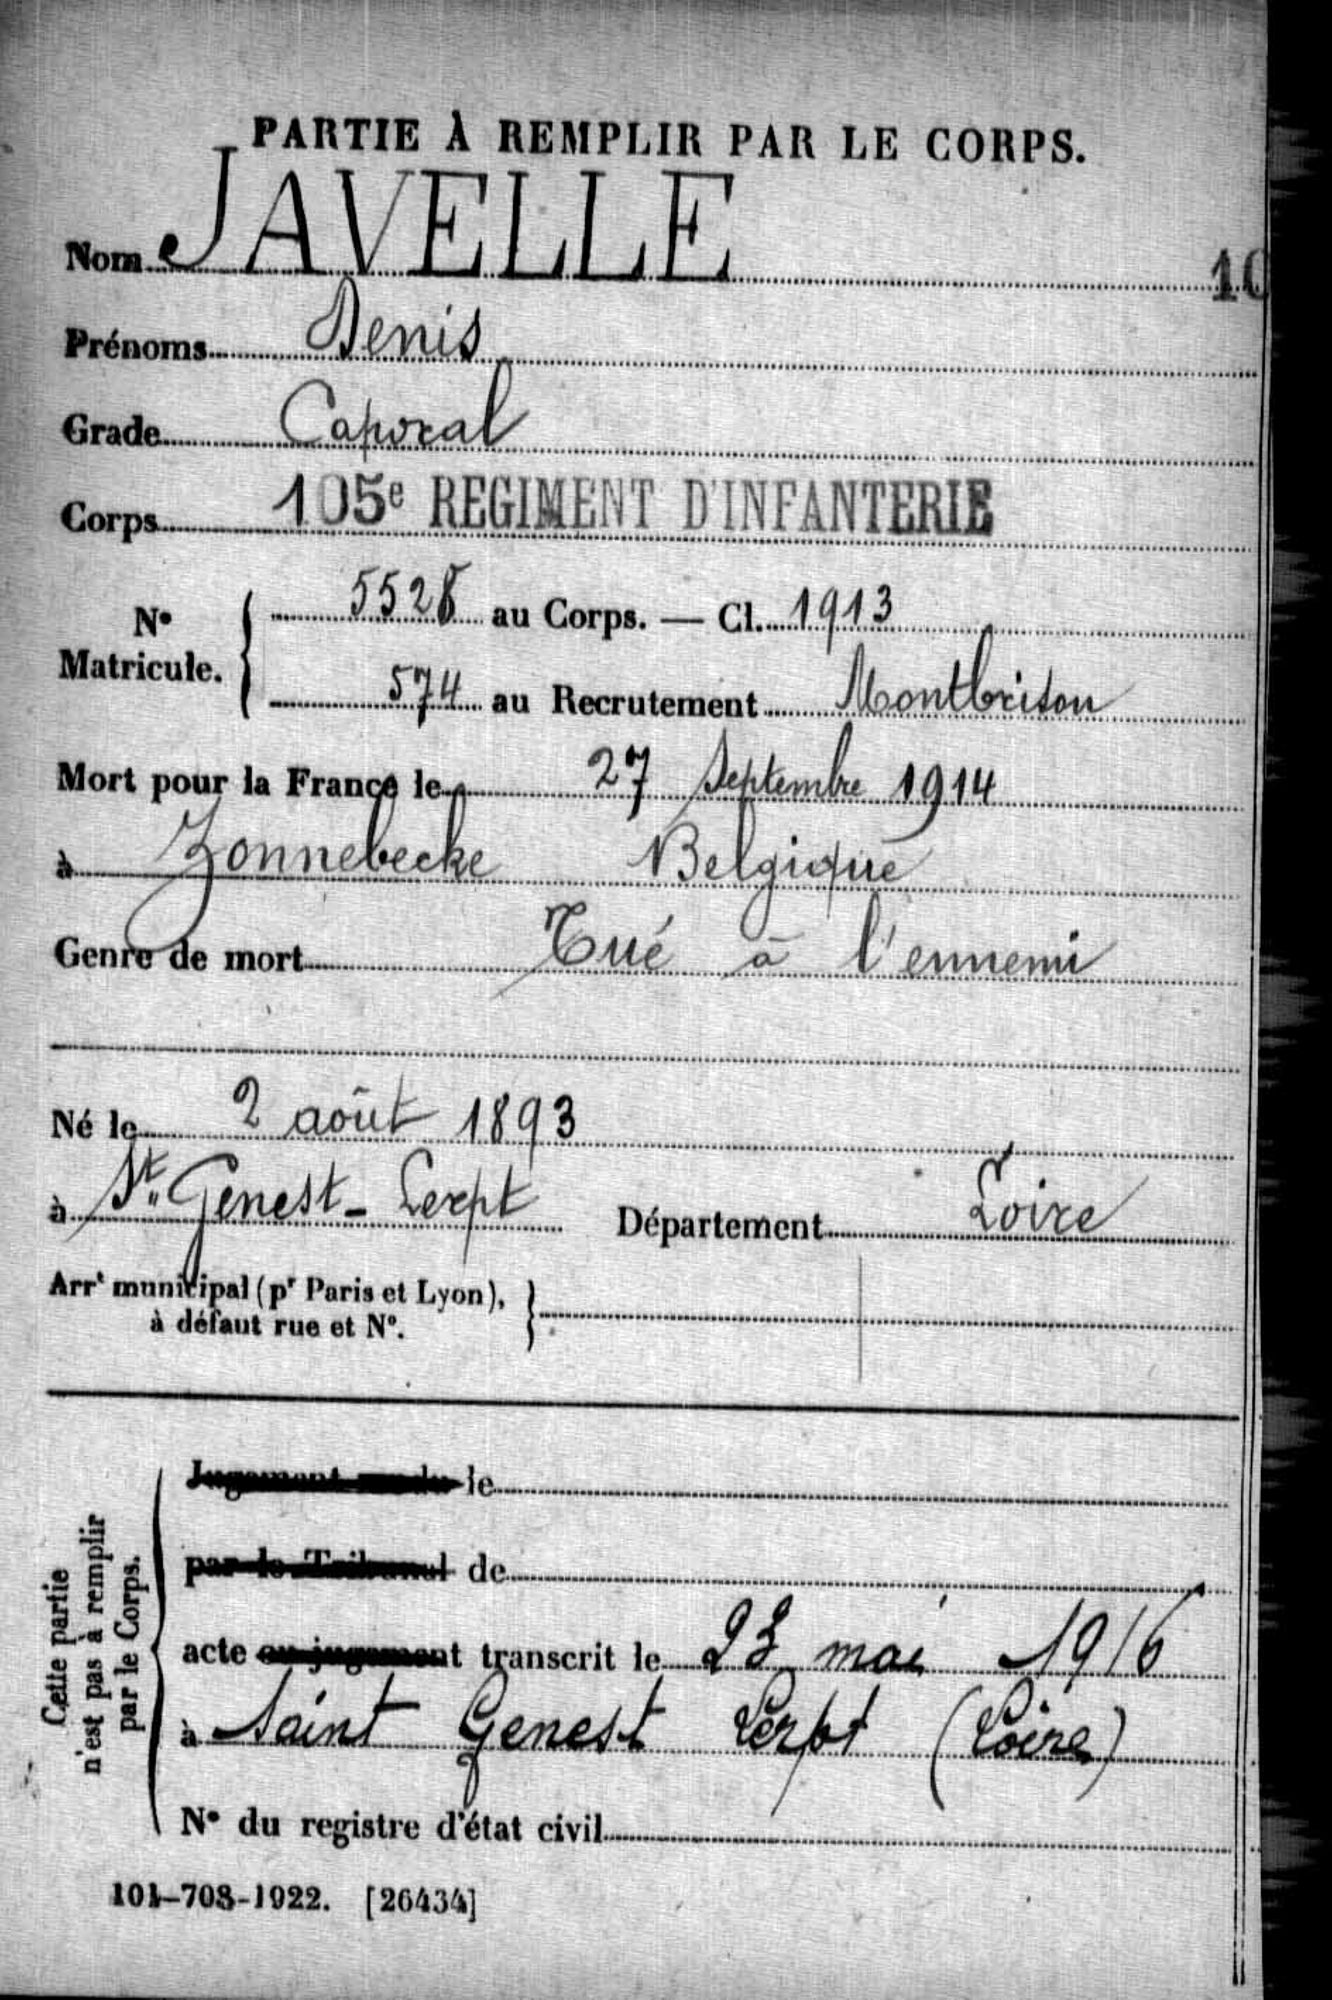 PARTIE À REMPLIR PAR LE CORPS.
Nom JAVELLE
10
Prénoms Denis
Grade Caporal
Corps 105e REGIMENT D'INFANTERIE
No Matricule. 5528 au Corps. — Cl. 1913
574 au Recrutement Montbrison
Mort pour la France le 27 Septembre 1914
à Zonnebecke Belgique
Genre de mort Tué à l'ennemi
Né le 2 août 1893
à St. Genest-Lerpt Département Loire
Arrt municipal (pr Paris et Lyon),
à défaut rue et No.
Cette partie
n'est pas à remplir
par le Corps.
Jugement rendu le
par le Tribunal de
acte ou jugement transcrit le 23 mai 1916
à Saint Genest Lerpt (Loire)
No du registre d'état civil
101-708-1922. [26434]